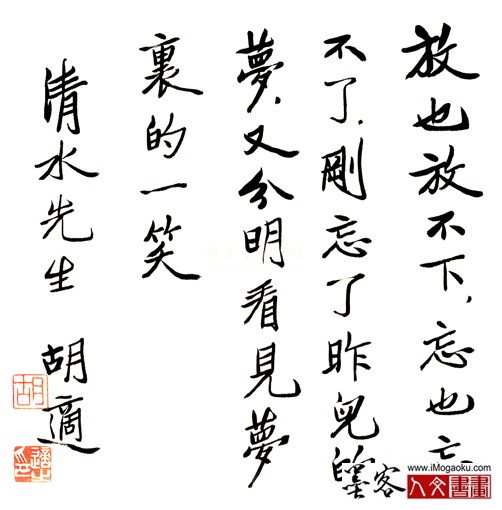 放也放不下,忘也忘
不了,剛忘了昨兒的
夢,又分明看見夢
裏的一笑
清水先生 胡適
胡
墨客
www.iMogaoku.com
人文書畫